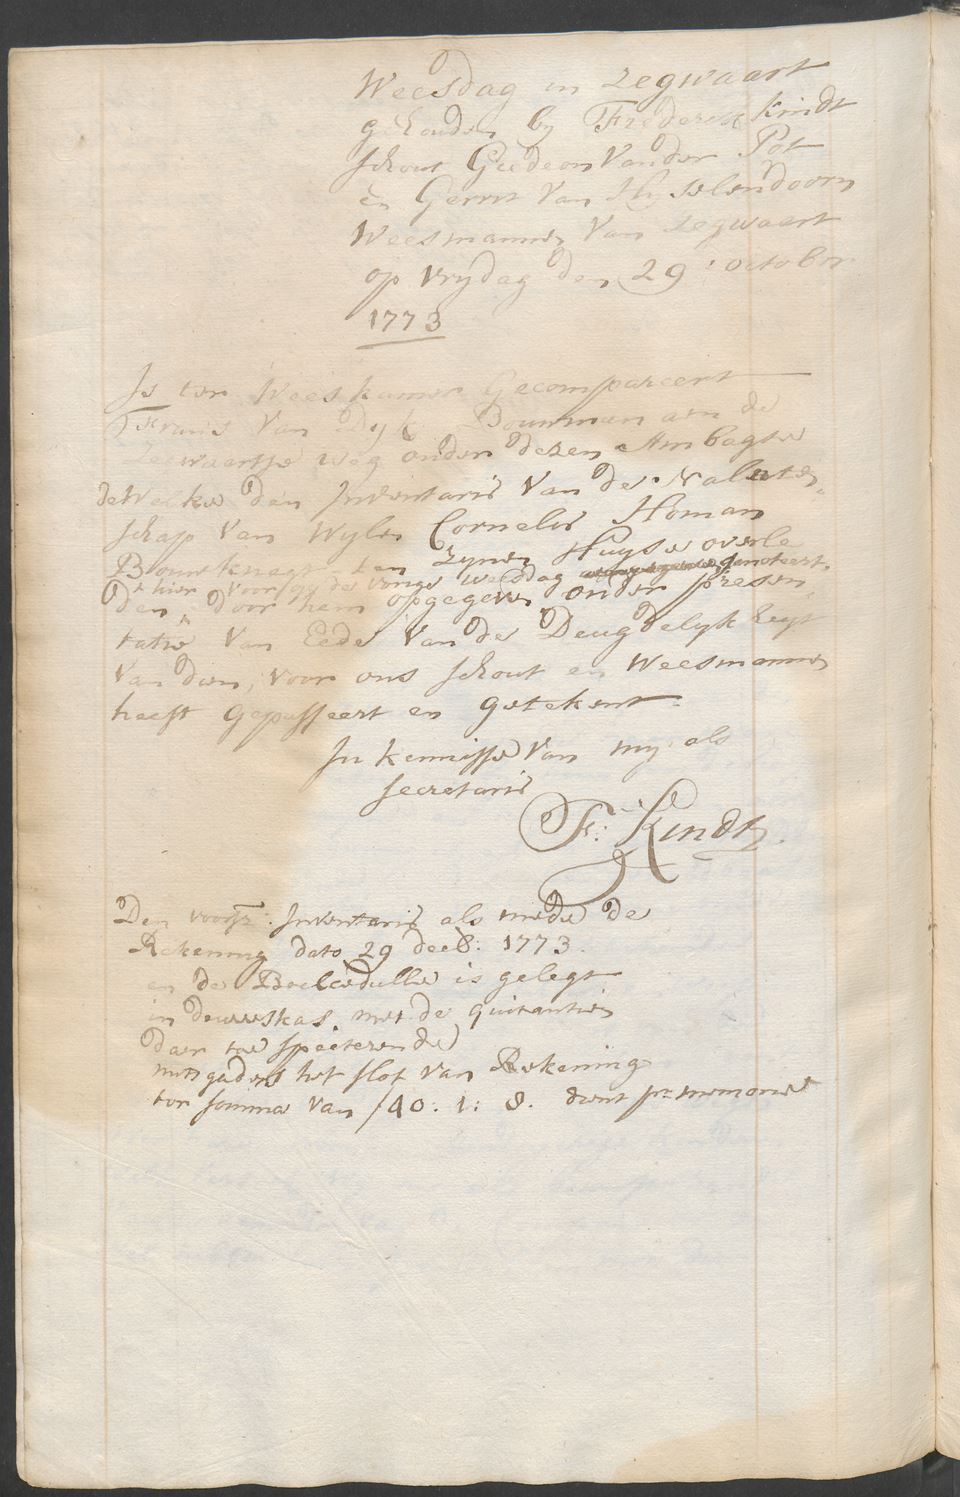 Weesdag in zegwaart
gehouden by Frederik Kindt
schout Gedeon Van der Pot
en Gerrit Van Hyselendoorn
Weesmannen Van zegwaart
op vrydag den 29: october
1773
Is ter Weeskamer Gecompareert
Teunis Van Dyk Bouwman aen de
Zegwaartse weg onder dezen Ambagte
de Welke den Inventaris Van de Nalaten-
schap Van Wylen Cornelis Homan
Bouwknegt ten Zynen Huyse overle
hier voor op de vorige weesdag genoteert
den door hem opgegeven onder presen-
tatie Van Eede Van de Deugdelykheyt
Van dien, voor ons schout en Weesmannen
heeft Gepasseert en getekent.
In kennisse Van my als
secretaris
F: Kindt
Den voorsz: Inventaris als mede de
Rekening dato 29 decb: 1773.
en de Boelcedulle is gelegt
in de weeskas, met de quitantien
daer toe specterende
mitsgaders het slot van Rekening
ter somma van ƒ40: 1: 8. dient pr memorie